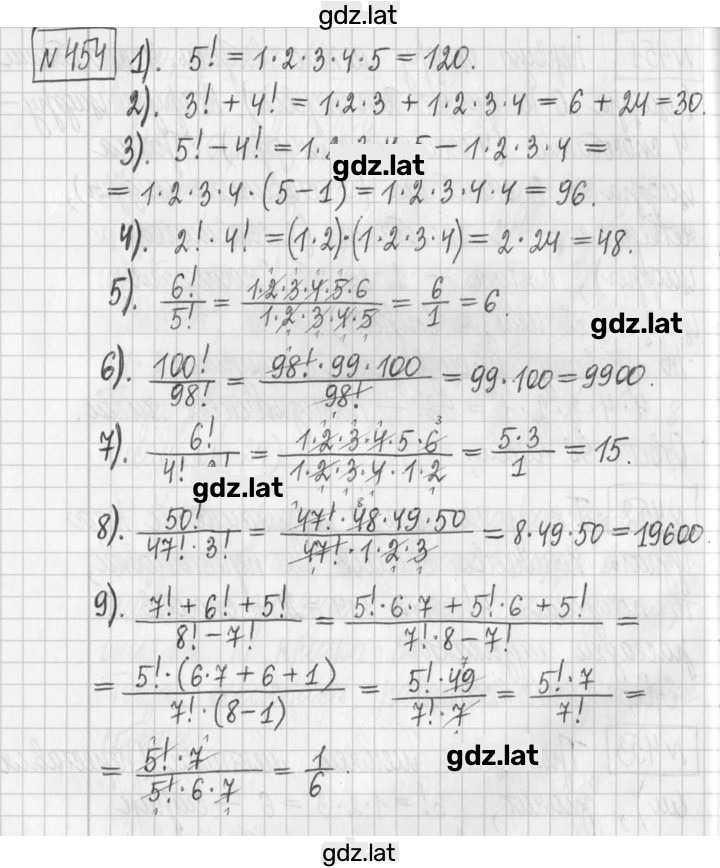 gdz.lat
№454 1). 5! = 1·2·3·4·5 = 120.
2). 3! + 4! = 1·2·3 + 1·2·3·4 = 6 + 24 = 30.
3). 5! − 4! = 1· − 1·2·3·4 =
gdz.lat
= 1·2·3·4·(5−1) = 1·2·3·4·4 = 96.
4). 2! · 4! = (1·2)·(1·2·3·4) = 2·24 = 48.
5). 6!/5! = 1·2·3·4·5·6/1·2·3·4·5 = 6/1 = 6.
gdz.lat
6). 100!/98! = 98!·99·100/98! = 99·100 = 9900.
7). 6!/4! = 1·2·3·4·5·6/1·2·3·4·1·2 = 5·3/1 = 15.
gdz.lat
8). 50!/47!·3! = 47!·48·49·50/47!·1·2·3 = 8·49·50 = 19600.
9). 7!+6!+5!/8!−7! = 5!·6·7 + 5!·6 + 5!/7!·8−7! =
= 5!·(6·7+6+1)/7!·(8−1) = 5!·49/7!·7 = 5!·7/7! =
= 5!·7/5!·6·7 = 1/6.
gdz.lat
gdz.lat